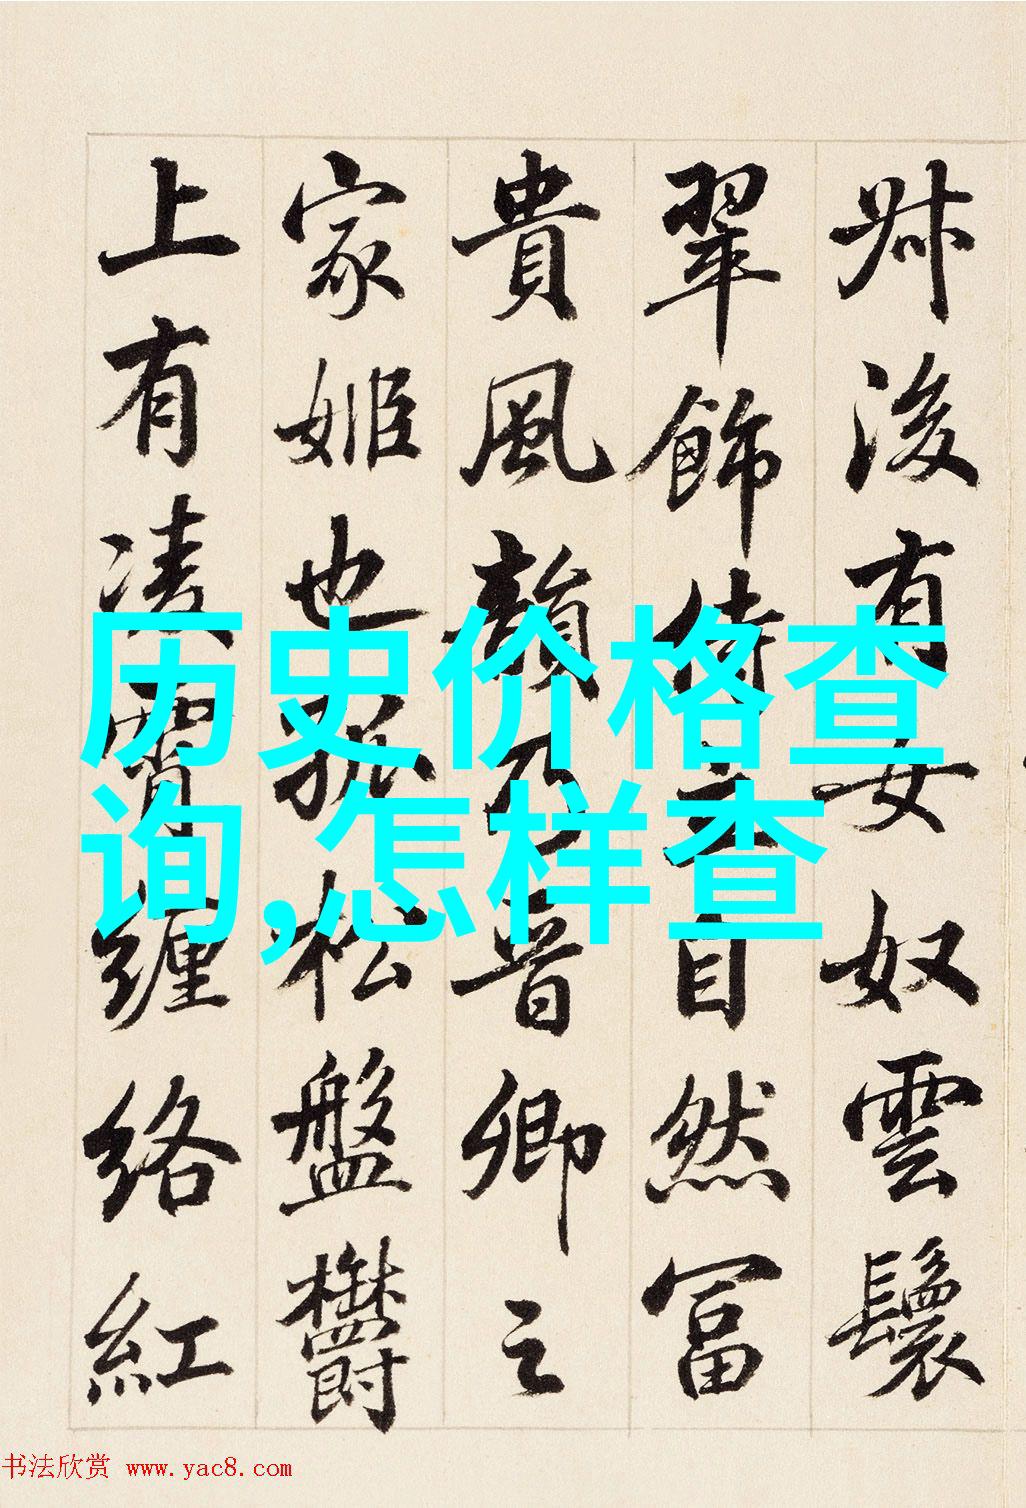 历史价格查
询,怎样查
叔後有女奴雲鬟
翠飾侍立自然富
貴風韻乃晉卿之
家姬也孤松盤鬱
上有凌霄纏絡紅
书法欣赏 www.yac8.com